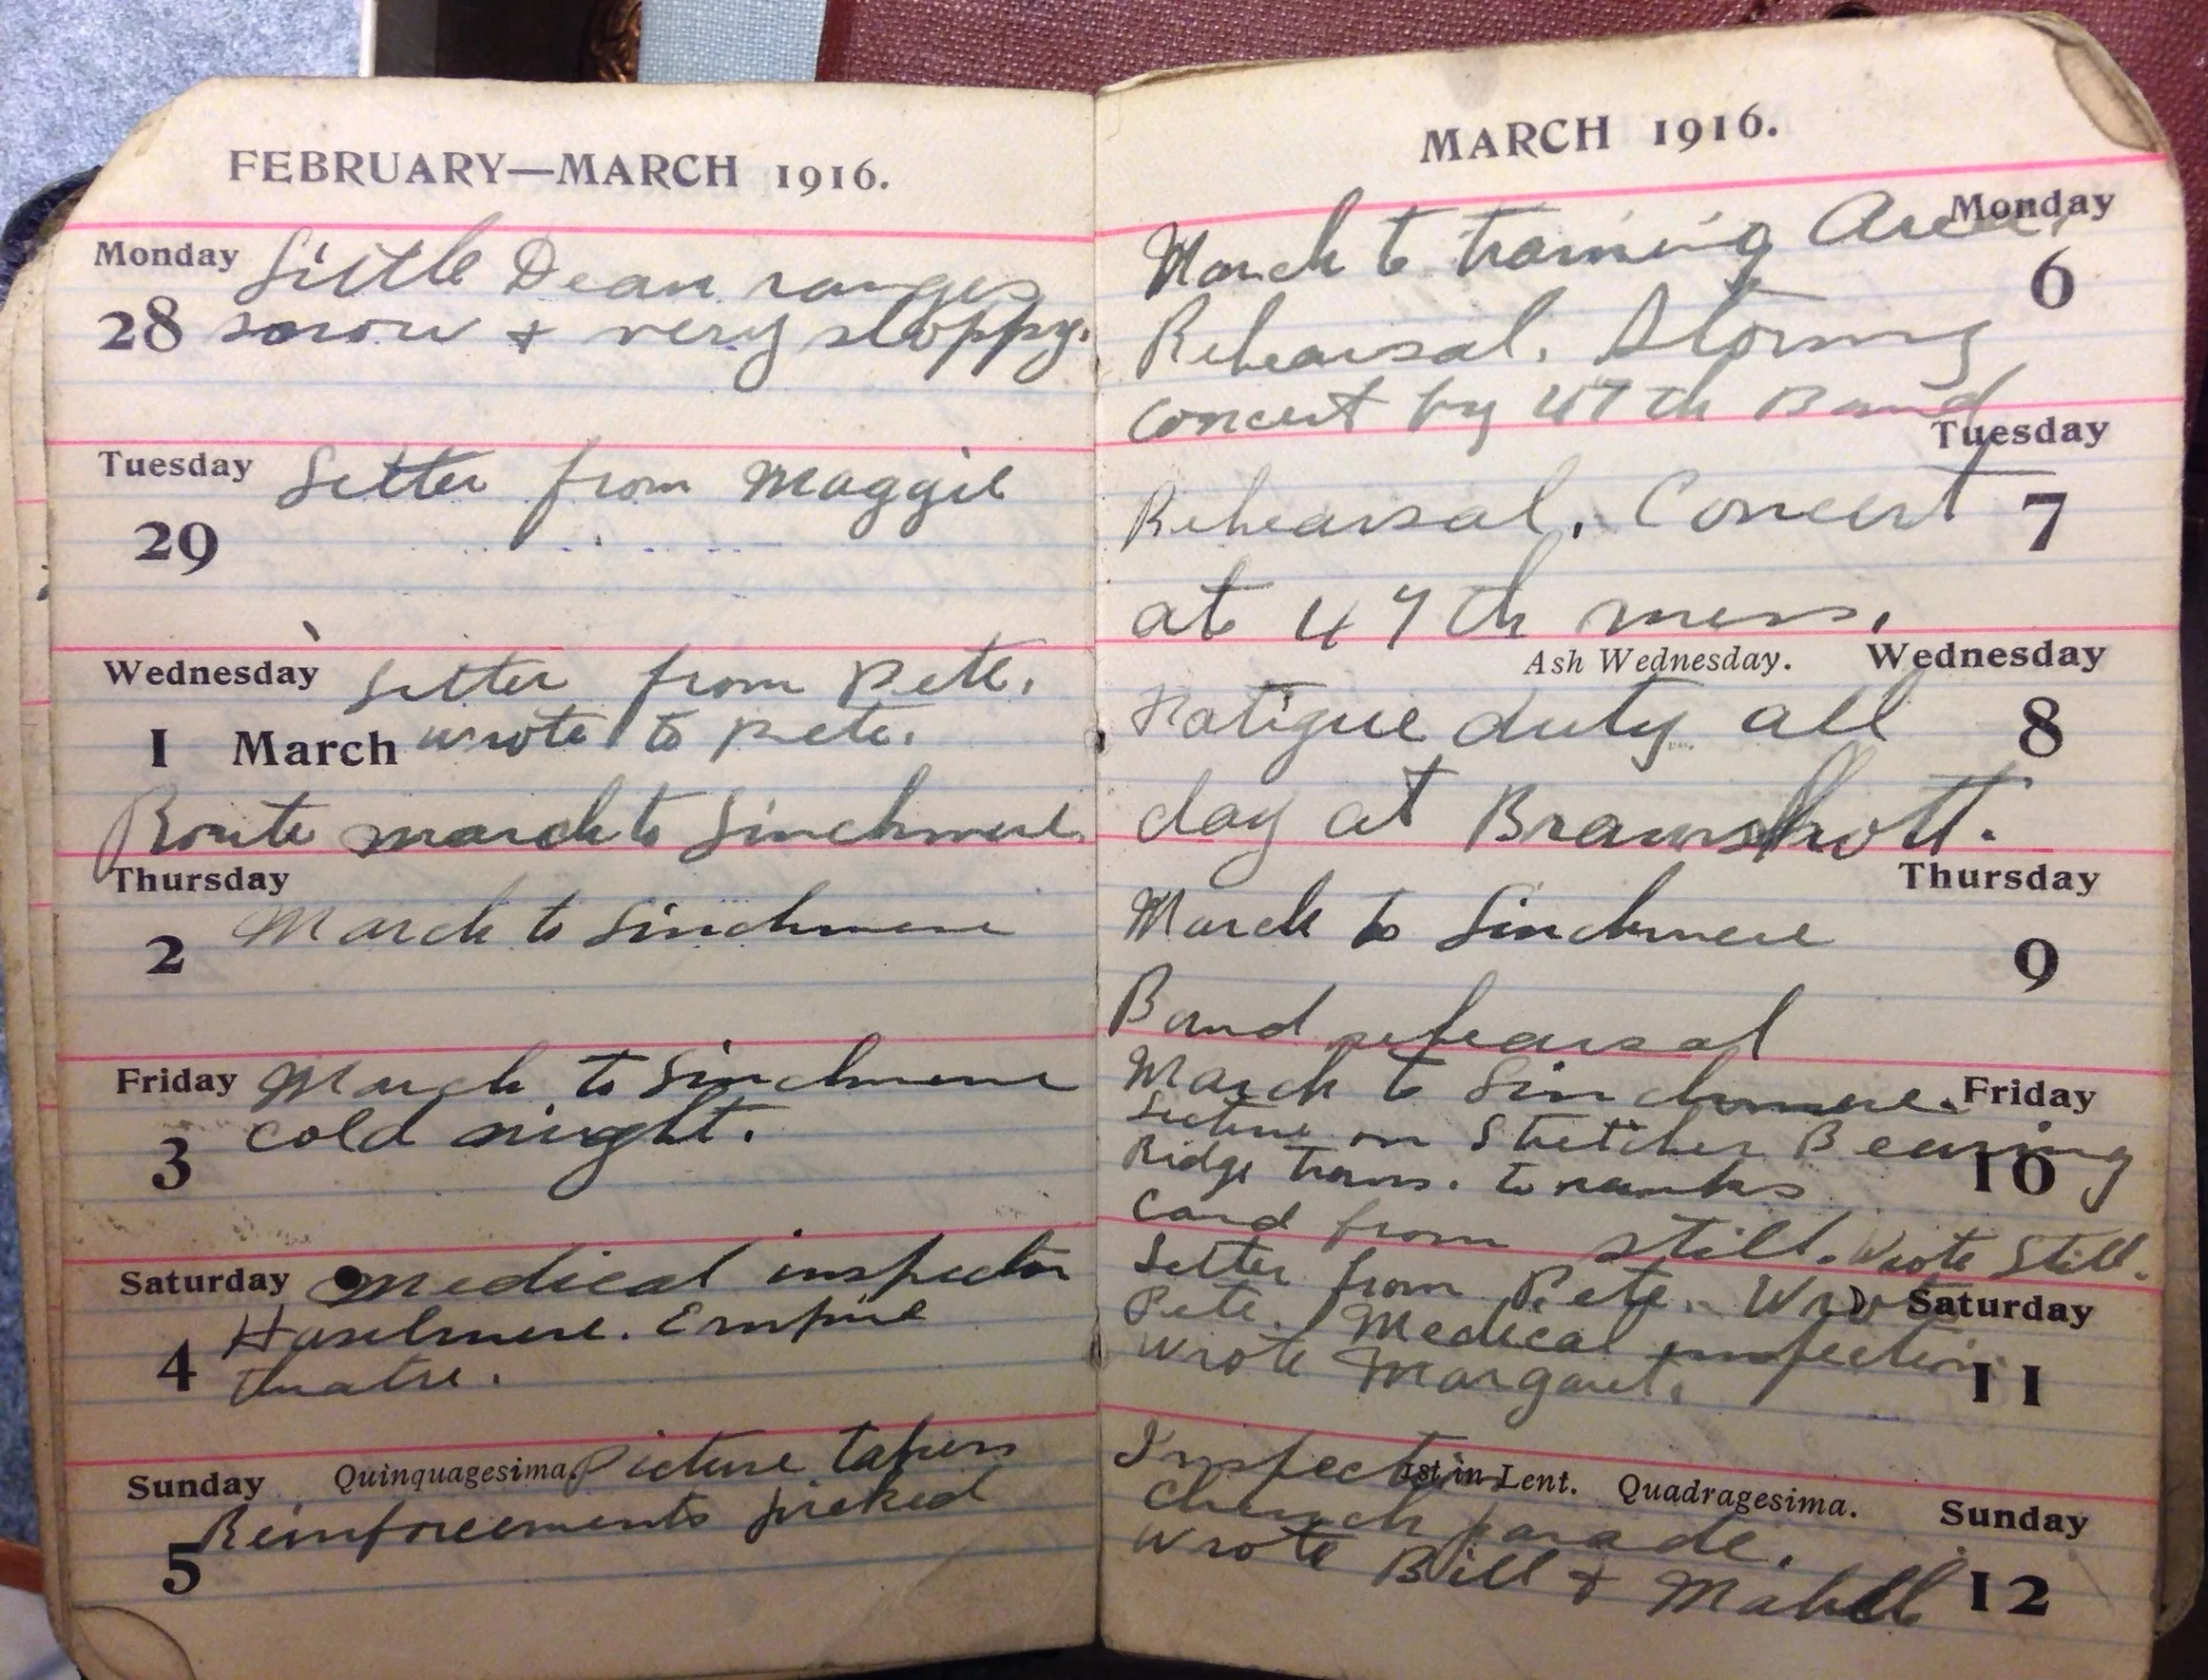 FEBRUARY—MARCH 1916.
Monday Little Dean ranges
28 snow + very sloppy.
Tuesday Letter from Maggie
29
Wednesday Letter from Pete.
1 March wrote to Pete.
Route march to Linchmere
Thursday
2 March to Linchmere
Friday March to Linchmere
3 cold night.
Saturday Medical inspection
4 Haselmere. Empire
theatre.
Sunday Quinquagesima. Picture taken
5 Reinforcements picked
MARCH 1916.
March to training Area. Monday
6
Rehearsal. Stormy
concert by 47th Band
Tuesday
Rehearsal. Concert 7
at 47th mess.
Ash Wednesday. Wednesday
Fatigue duty all 8
day at Bramshott.
Thursday
March to Linchmere 9
Band rehearsal
March to Linchmere. Friday
Lecture on Stretcher Bearing
Ridge trans. to ranks 10
Card from Still. Wrote Still.
Letter from Pete. Wrote Saturday
Pete. Medical inspection
Wrote Margaret. 11
Inspection 1st in Lent. Quadragesima. Sunday
Church parade.
Wrote Bill + Mabell 12